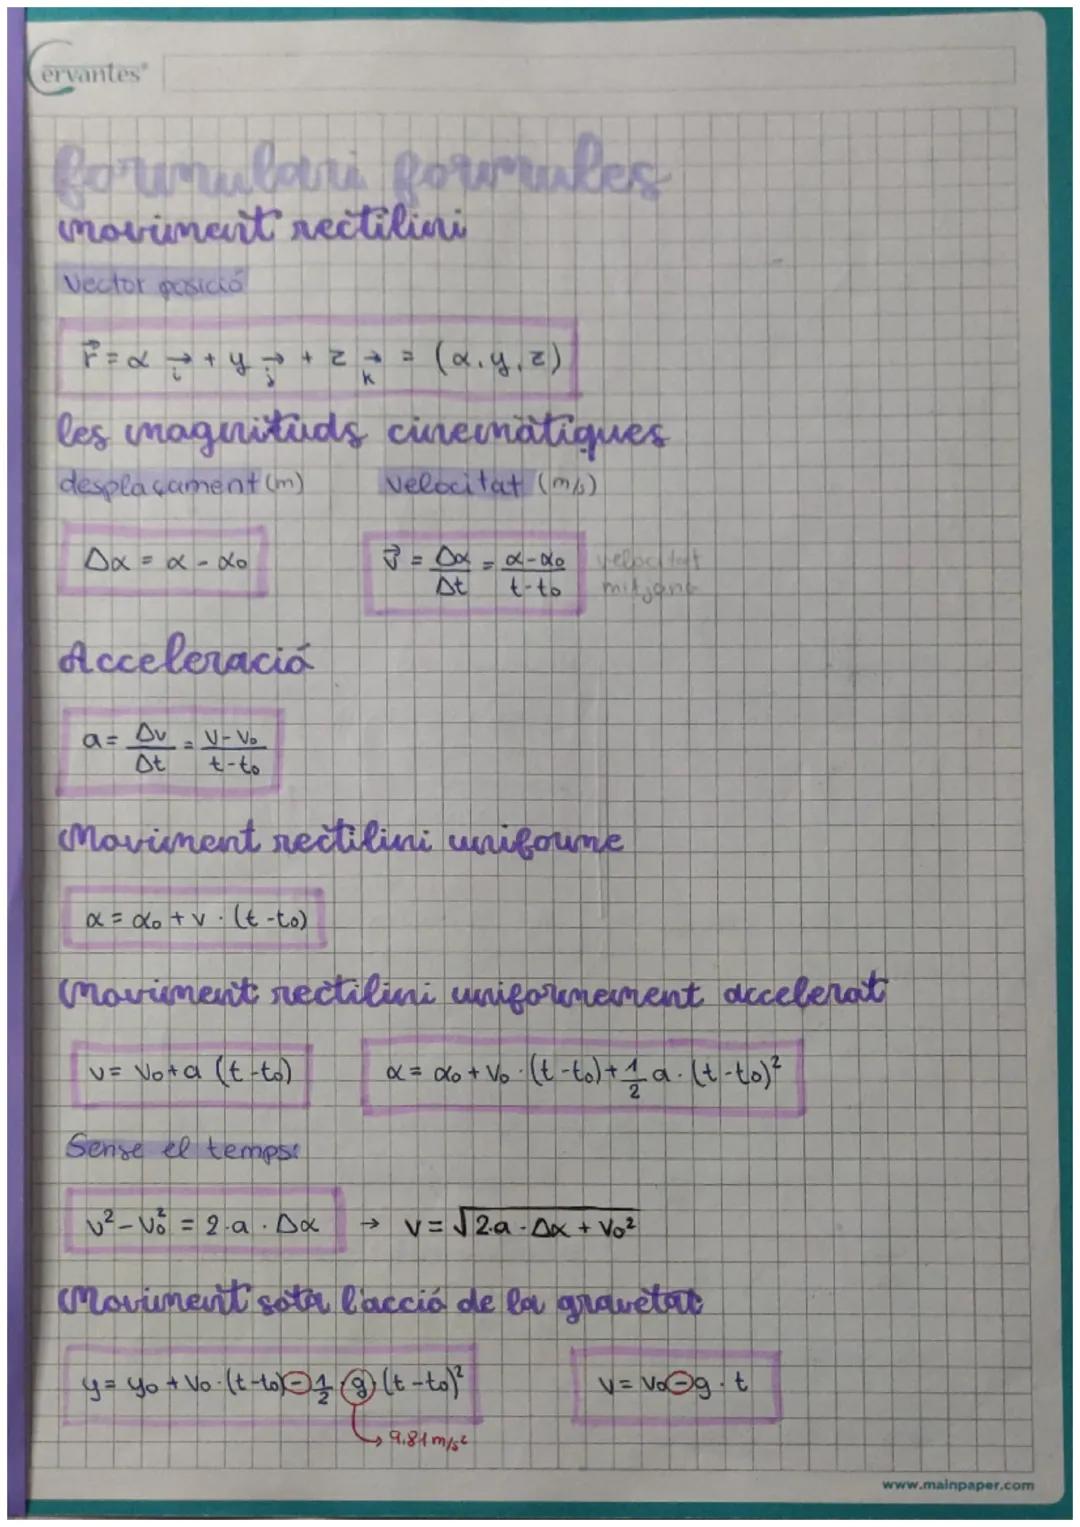 Cervantes®
formulari formules
moviment rectilini
Vector posició
r⃗ = x i⃗ + y j⃗ + z k⃗ = (x, y, z)
les magnituds cinemàtiques
desplaçament (m) velocitat (m/s)
Δx = x - x₀ v⃗ = Δx/Δt = (x - x₀)/(t - t₀) velocitat mitjana
Acceleració
a = Δv/Δt = (v - v₀)/(t - t₀)
Moviment rectilini uniforme
x = x₀ + v · (t - t₀)
Moviment rectilini uniformement accelerat
v = v₀ + a (t - t₀) x = x₀ + v₀ · (t - t₀) + 1/2 a · (t - t₀)²
Sense el temps:
v² - v₀² = 2 · a · Δx → v = √(2·a · Δx + v₀²)
Moviment sota l'acció de la gravetat
y = y₀ + v₀ · (t - t₀) - 1/2 · g (t - t₀)² v = v₀ - g · t
↳ 9.81 m/s²
www.mainpaper.com